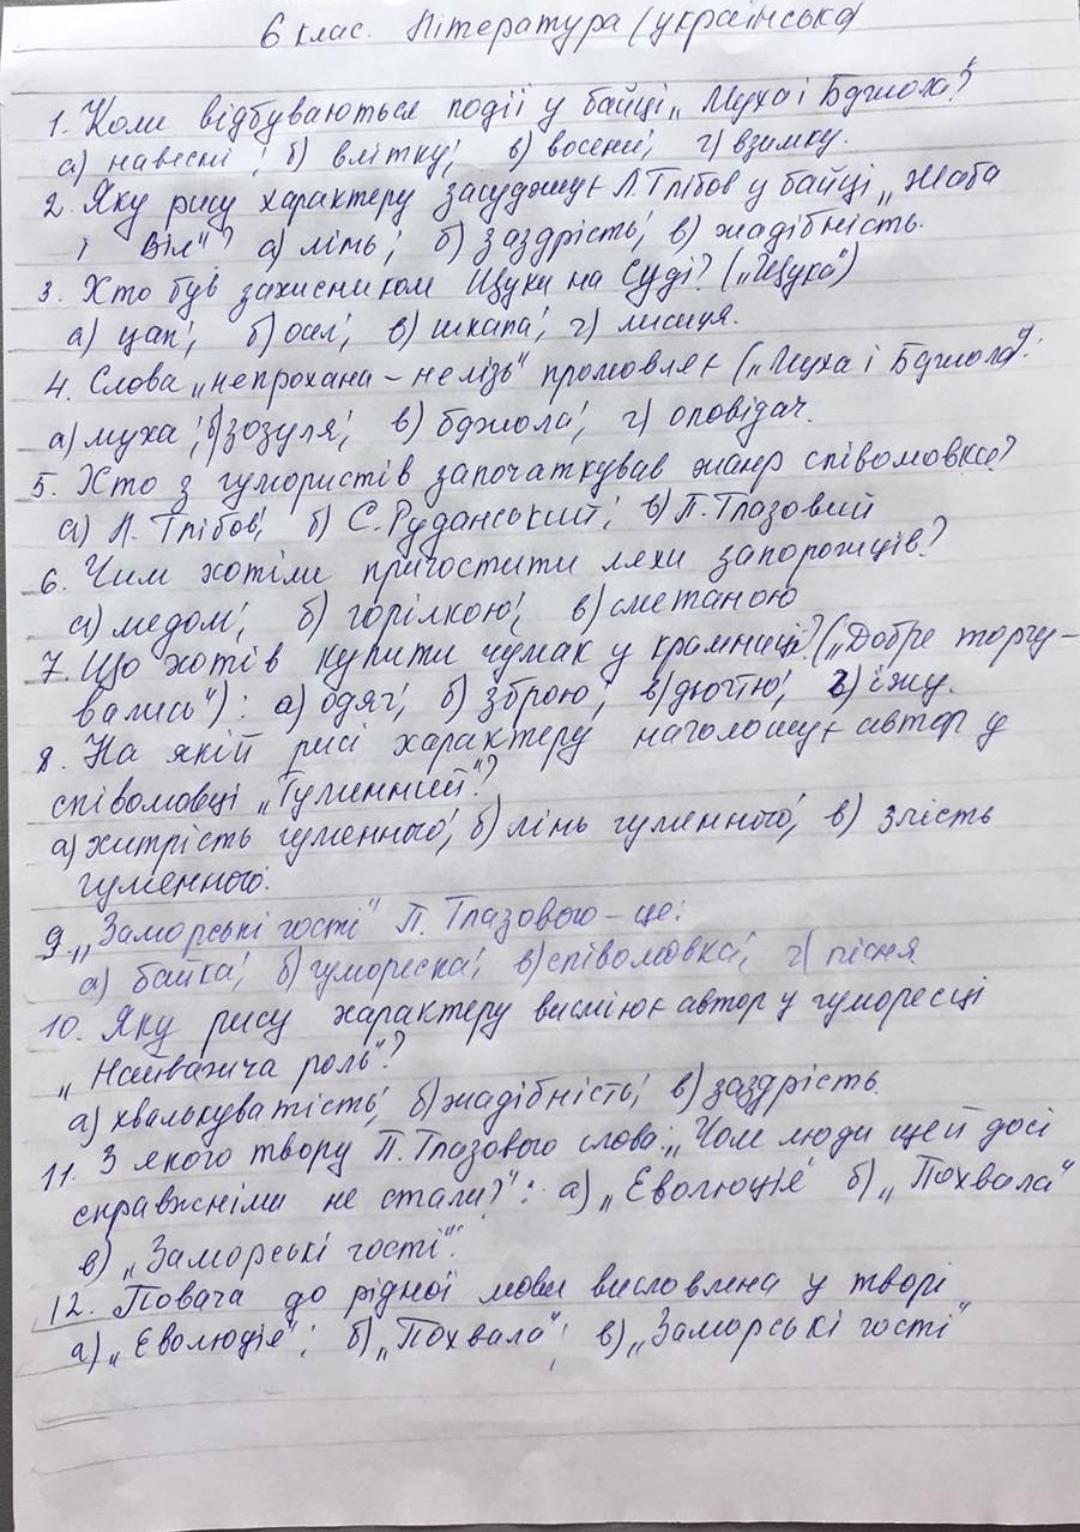 6 клас. Література (українська)
1. Коли відбуваються події у байці „Муха і Бджола"?
а) навесні; б) влітку; в) восени; г) взимку.
2. Яку рису характеру засуджує Л. Глібов у байці „Жаба
і Віл"? а) лінь; б) заздрість; в) жадібність.
3. Хто був захисником Щуки на суді? („Щука")
а) цап; б) осел; в) шкапа; г) лисиця.
4. Слова „непрохана – нелізь" промовляє („Муха і Бджола"):
а) муха; б) зозуля; в) бджола; г) оповідач.
5. Хто з гумористів започаткував жанр співомовки?
а) Л. Глібов; б) С. Руданський; в) П. Глазовий
6. Чим хотіли пригостити ляхи запорожців?
а) медом; б) горілкою; в) сметаною
7. Що хотів купити чумак у крамниці? („Добре торгу-
вались"): а) одяг; б) зброю; в) дьогтю; г) їжу.
8. На якій рисі характеру наголошує автор у
співомовці „Гуменний"?
а) хитрість гуменного; б) лінь гуменного; в) злість
гуменного.
9. „Заморські гості" П. Глазового – це:
а) байка; б) гумореска; в) співомовка; г) пісня
10. Яку рису характеру висміює автор у гуморесці
„Найважча роль"?
а) хвалькуватість; б) жадібність; в) заздрість.
11. З якого твору П. Глазового слова: „Чом люди щей досі
справжніми не стали?": а) „Еволюція" б) „Похвала"
в) „Заморські гості".
12. Повага до рідної мови висловлена у творі
а) „Еволюція"; б) „Похвала"; в) „Заморські гості"